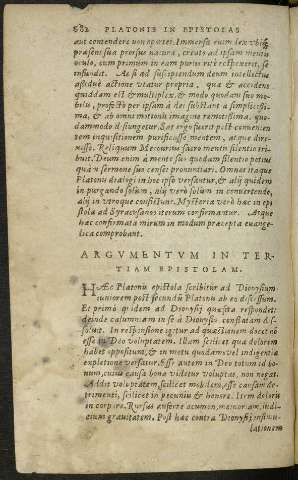 682 PLATONIS IN EPISTOLAS
aut contendere non oportet. Immensa enim lex vbiq;
præsens sua prorsus natura, creato ad ipsam mentis
oculo, cum primum in eam purus rite respexerit, se
infundit. Ac si ad suspiciendum deum intellectus
assidue actione vtatur propria, quæ & accidens
quiddam est & multiplex, & modo quodam suo mo-
bilu, profecto per ipsum à dei substantia simplicissi-
ma, & ab omni motionis imagine remotissima, quo-
dammodo seiungetur. Sat ergo fuerit post conuenien-
tem inquisitionem purificasse mentem, atque dire-
xisse. Reliquum Mercurius sacro mentis silentio tri-
buit. Deum enim à mente suo quodam silentio potius
quàm sermone suo censet pronuntiari. Omnes itaque
Platonis dialogi in hoc ipso versantur, & alij quidem
in purgando solum, alij verò solum in conuertendo,
alij in vtroque consistunt. Mysteria verò hæc in epi
stola ad Syracusanos iterum confirmantur. Atque
hæc confirmata mirum in modum præcepta euange-
lica comprobant.
ARGVMENTVM IN TER-
TIAM EPISTOLAM.
HÆc Platonis epistola scribitur ad Dionysium
iuniorem post secundum Platonis ab eo discessum.
Et primò quidem ad Dionysij quæsita respondet:
deinde calumniam in se à Dionysio conflatam di-
soluit. In responsione igitur ad quæstionem docet nō
esse in Deo voluptatem. Illam scilicet quæ dolorem
habet oppositum, & in motu quodam vel indigentiæ
expletione versatur. Esse autem in Deo totum id bo-
num, cuius causa bona videtur voluptas, non negat.
Addit voluptatem, scilicet mobilem, esse causam de-
trimenti, scilicet in pecuniis & honore. Item doloris
in corpore. Rursus auferre acumen, memoriam, iudi-
cium grauitatem. Post hæc contra Dionysij insimu-
lationem